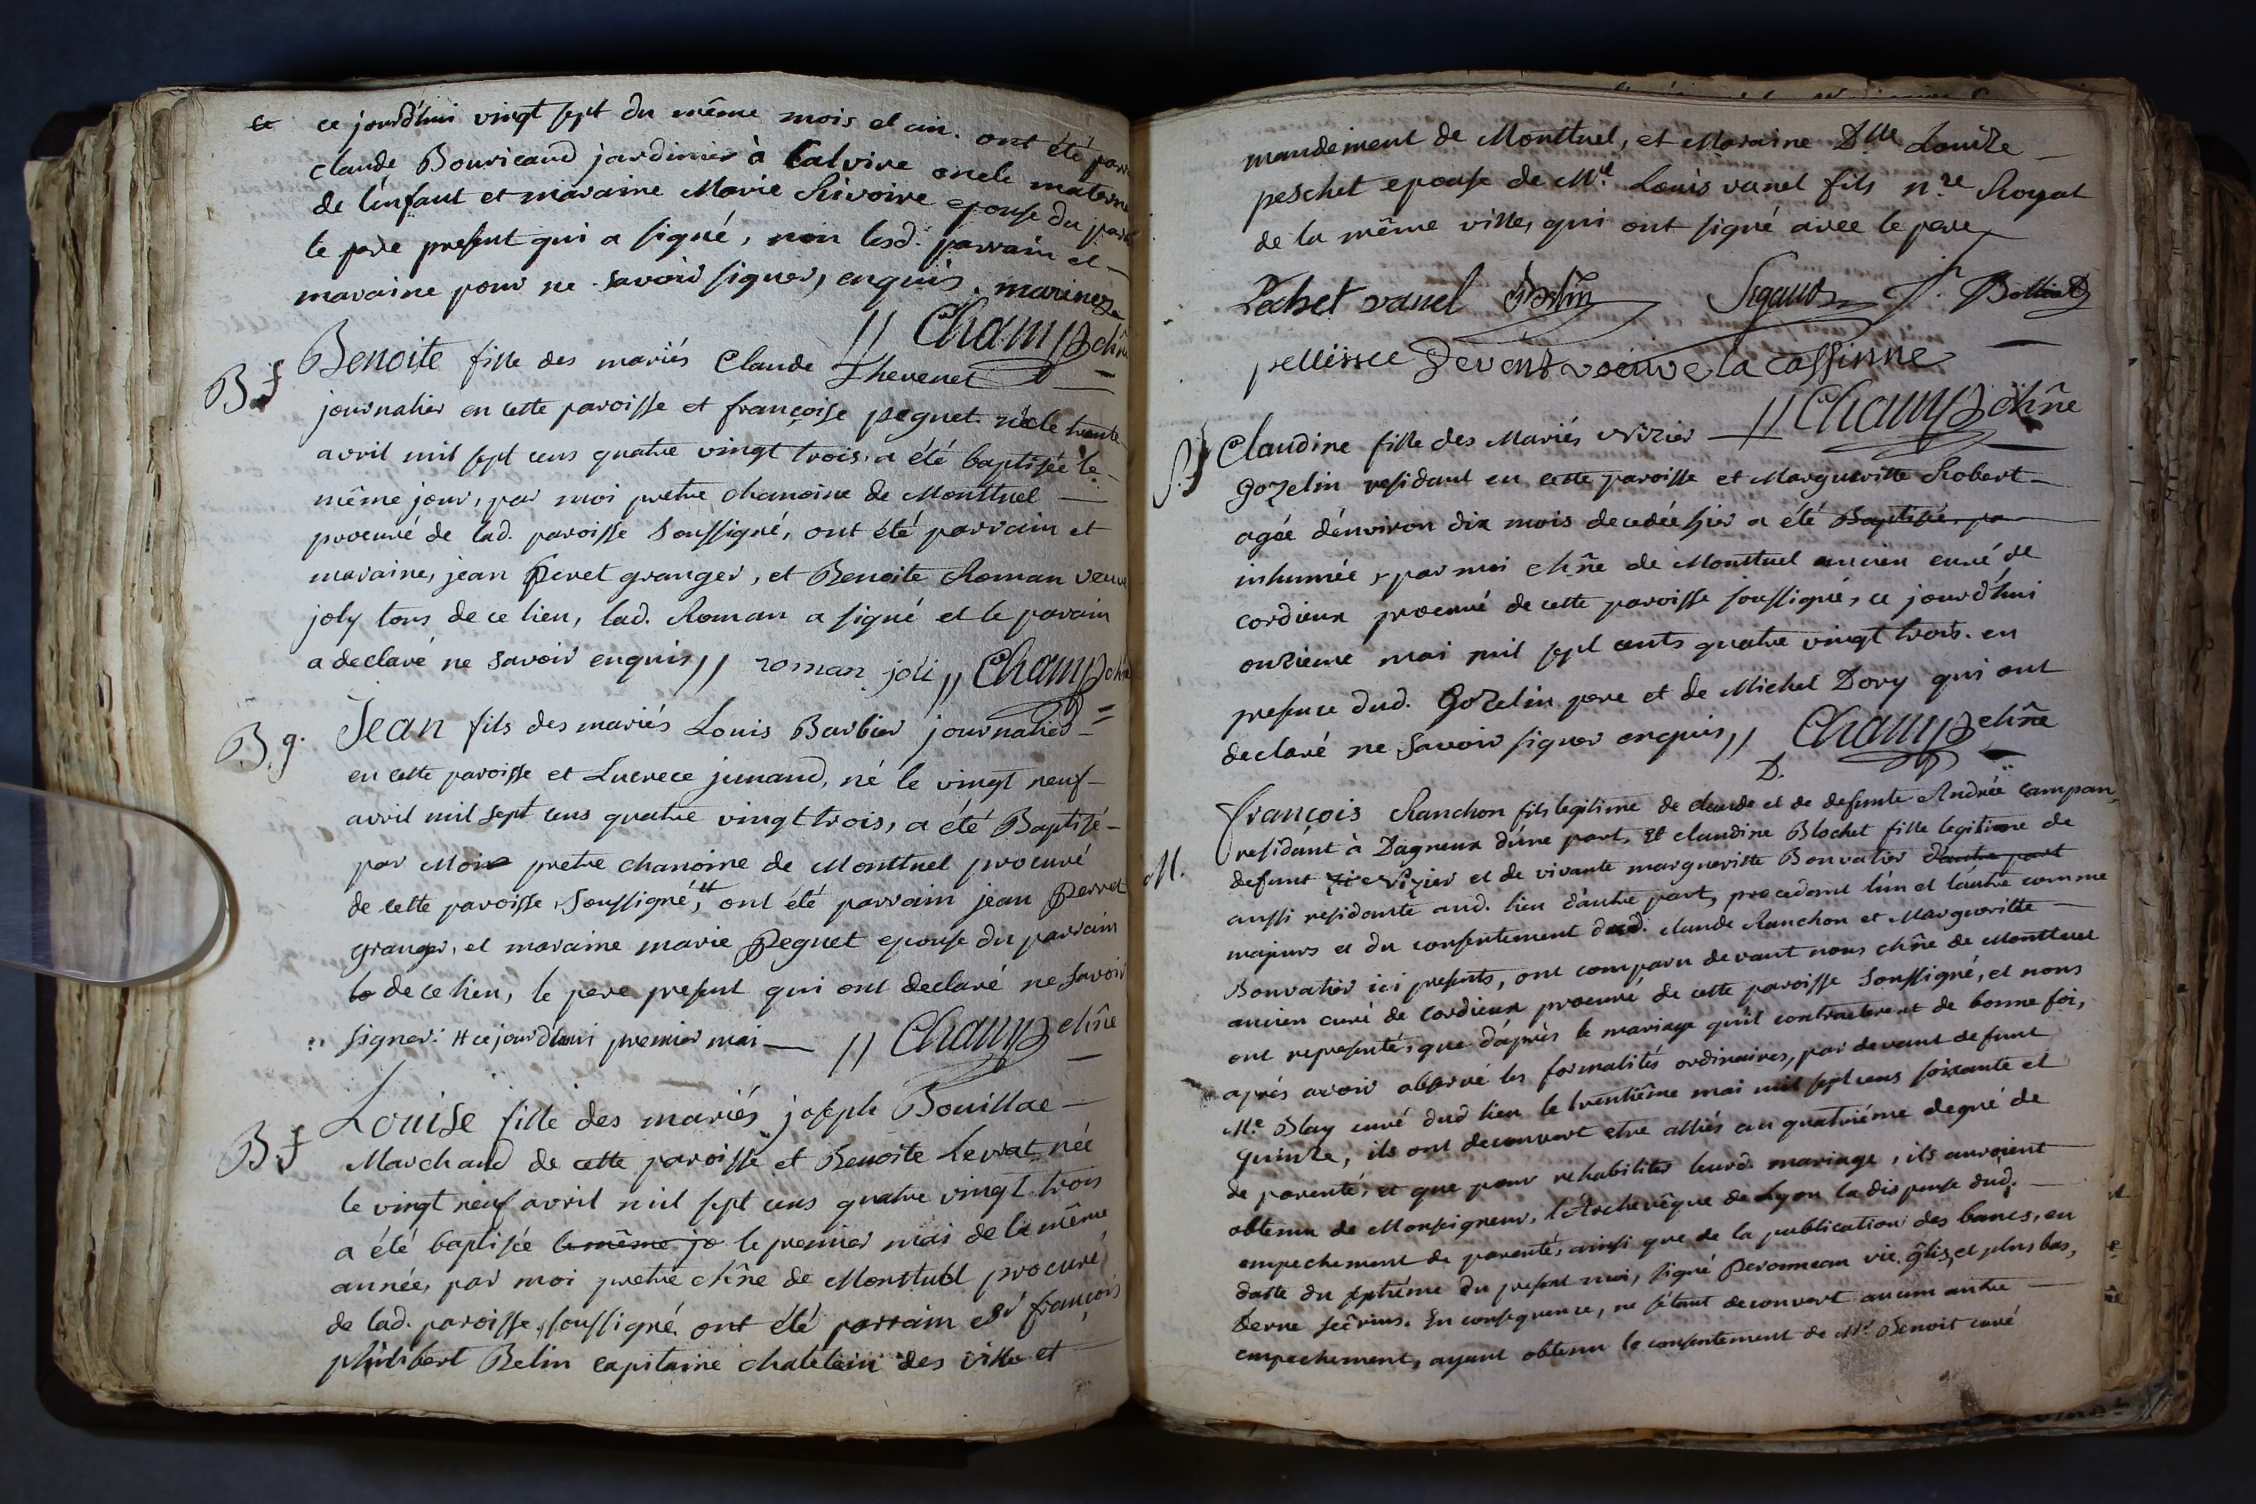 ce jourd'hui vingt sept du même mois et an. ont été
claude Bouricaud jardinier à Calvire oncle
de l'infant et maraine Marie Rivoire epouse du
le pere present qui a signé, non lesd. parrain et
maraine pour ne savoir signer, enquis. marinez
// Champ
B. f Benoite fille des mariés Claude Thevenet
journalier en cette paroisse et françoise peguet née le trente
avril mil sept cens quatre vingt trois, a été baptisée le
même jour, par moi pretre chanoine de Montluel
procuré de lad. paroisse soussigné, ont été parrain et
maraine, jean peret granger, et Benoite Roman veuve
joly tous de ce lieu, lad. Roman a signé et le parain
a declaré ne savoir enquis // roman joli // Champ
B. g. Jean fils des mariés Louis Barbier journalier
en cette paroisse et Lucrece junand, né le vingt neuf
avril mil sept cens quatre vingt trois, a été Baptisé
par Moi pretre chanoine de Montluel procuré
de cette paroisse soussigné, # ont été parrain jean Perret
granger, et maraine marie Peguet epouse du parrain
de ce lieu, le pere present qui ont declaré ne savoir
signer. # ce jourd'hui premier mai — // Champ chñe
B. f Louise fille des mariés joseph Bouillac
Marchand de cette paroisse et Benoite Levrat née
le vingt neuf avril mil sept cens quatre vingt trois
a été baptisée le même jo le premier mai de la même
année, par moi pretre chñe de Montluel procuré
de lad. paroisse soussigné ont été parrain sr françois
philibert Belin capitaine chatelain des ville et
mandement de Montluel, et Maraine Dlle Louize
peschet epouse de Mr. Louis vanel fils n.re Royal
de la même ville, qui ont signé avec le pere
Pechet vanel Belin Sigaud
pellissee veuve la cassinne
// Champ chñe
S. f Claudine fille des Mariés Vizier
Gozelin residant en cette paroisse et Margueritte Robert
agée d'environ dix mois decedée hier a été Baptisée, pa
inhumée, par moi chñe de Montluel ancien curé de
cordieux procuré de cette paroisse soussigné, ce jourd'hui
onzieme mai mil sept cents quatre vingt trois. en
presence dud. Gozelin pere et de Michel Dory qui ont
declaré ne savoir signer enquis // Champ chñe
D.
M. françois Ranchon fils legitime de claude et de defunte Andrée Campan
residant à Dagneux d'une part, et claudine Blochet fille legitime de
defunt Vizier et de vivante margueritte Bonvalier d'autre part
aussi residante aud. lieu d'autre part, procedant l'un et l'autre comme
majeurs et du consentement dud. claude Ranchon et Margueritte
Bonvalier ici presents, ont comparu devant nous chñe de Montluel
ancien curé de Cordieux procuré de cette paroisse soussigné, et nous
ont representé, que d'après le mariage qu'il contracterent de bonne foi,
après avoir observé les formalités ordinaires, par devant defunt
M.e Blay curé dud lieu le trentième mai mil sept cens soixante et
quinze, ils ont decouvert etre alliés au quatriéme degré de
de parenté, et que pour rehabiliter leurd. mariage, ils auroient
obtenu de Monseigneur, l'Archevêque de Lyon la dispense dud.
empechement de parenté, ainsi que de la publication des bancs, en
datte du septiéme du present mois, signé peronneau vic. glis, et plus bas,
Derne secrius. En consequence, ne s'étant decouvert aucun autre
empechement, ayant obtenu le consentement de Mr Benoit curé